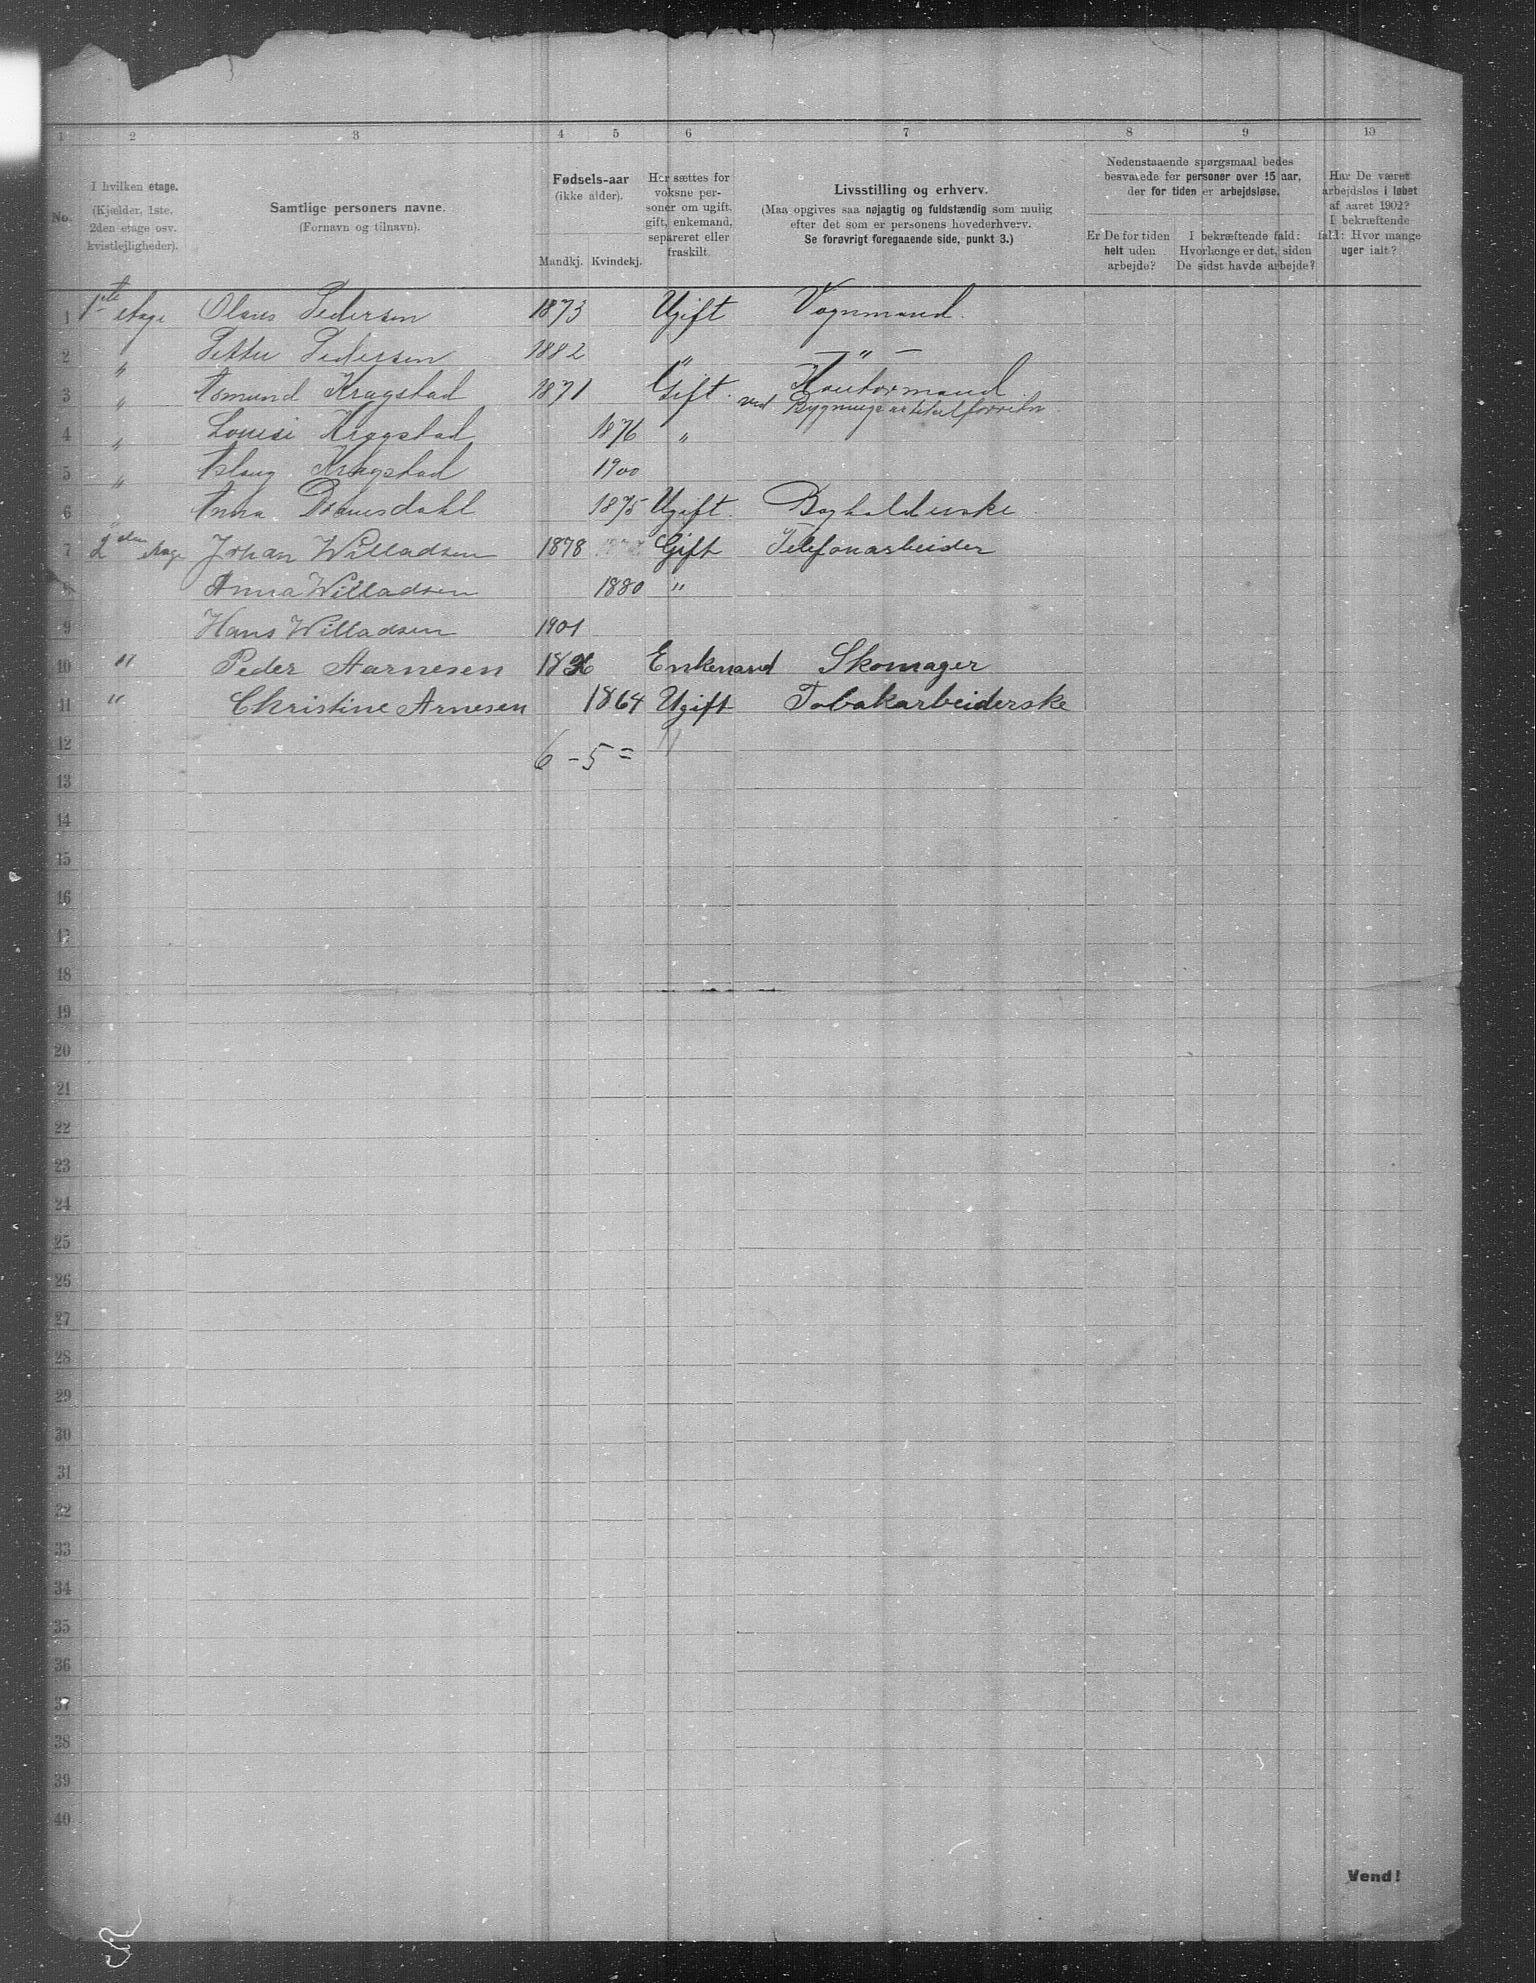 1 2 3 4 5 6 7 8 9 10
No.
I hvilken etage.
(Kjælder, 1ste,
2den etage osv.
kvistlejligheder).
Samtlige personers navne.
(Fornavn og tilnavn).
Fødsels-aar
(ikke alder).
Mandkj. Kvindekj.
Her sættes for
voksne per-
soner om ugift,
gift, enkemand,
separeret eller
fraskilt.
Livsstilling og erhverv.
(Maa opgives saa nøjagtig og fuldstændig som mulig
efter det som er personens hovederhverv.
Se forøvrigt foregaaende side, punkt 3.)
Nedenstaaende spørgsmaal bedes
besvarede for personer over 15 aar,
der for tiden er arbejdsløse.
Er De for tiden
helt uden
arbejde?
I bekræftende fald:
Hvorlænge er det, siden
De sidst havde arbejde?
Har De været
arbejdsløs i løbet
af aaret 1902?
I bekræftende
fald: Hvor mange
uger ialt?
1 1ste etage Olaus Pedersen 1873 Ugift Vognmand.
2 " Petter Pedersen 1882 " — " —
3 " Asmund Kragstad 1871 Gift. Kontormand
ved
4 " Louise Kragstad 1876 "
5 " Aslaug Kragstad 1900
6 " Anna 1875 Ugift. Bogholderske
7 2den etage Johan Willadsen 1878 Gift Telefonarbeider
8 Anna Willadsen 1880 "
9 Hans Willadsen 1901
10 " Peder Aarnesen Enkemand Skomager
11 " Christine Arnesen 1864 Ugift Tobakarbeiderske
12 6 - 5 =
13
14
15
16
17
18
19
20
21
22
23
24
25
26
27
28
29
30
31
32
33
34
35
36
37
38
39
40
Vend!